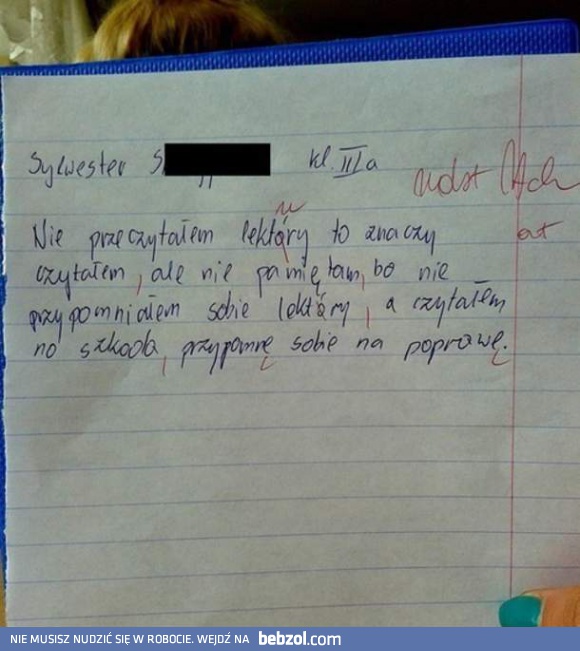 Sylwester S kl. IIIa
ndst
Nie przeczytałem lektóry to znaczy
czytałem, ale nie pamiętam, bo nie
przypomniałem sobie lektóry, a czytałem
no szkoda, przypomnę sobie na poprawę.
NIE MUSISZ NUDZIĆ SIĘ W ROBOCIE. WEJDŹ NA bebzol.com